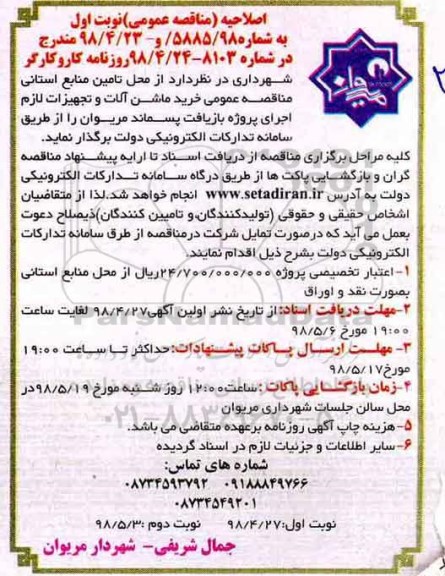 اصلاحیه (مناقصه عمومی)نوبت اول
به شماره۵۸۸۵/۹۸/ و- ۹۸/۴/۲۳ مندرج
در شماره ۸۱۰۳-۹۸/۴/۲۴روزنامه کاروکارگر
شهرداری در نظردارد از محل تامین منابع استانی
مناقصه عمومی خرید ماشن آلات و تجهیزات لازم
اجرای پروژه بازیافت پسماند مریوان را از طریق
سامانه تدارکات الکترونیکی دولت برگذار نماید.
کلیه مراحل برگزاری مناقصه از دریافت اسناد تا ارایه پیشنهاد مناقصه
گران و بازگشایی پاکت ها از طریق درگاه سامانه تدارکات الکترونیکی
دولت به آدرس www.setadiran.ir انجام خواهد شد.لذا از متقاضیان
اشخاص حقیقی و حقوقی (تولیدکنندگان.و تامیین کنندگان)ذیصلاح دعوت
بعمل می آید که درصورت تمایل شرکت درمناقصه از طرق سامانه تدارکات
الکترونیکی دولت بشرح ذیل اقدام نمایند.
۱-اعتبار تخصیصی پروژه ۲۴/۷۰۰/۰۰۰/۰۰۰ریال از محل منابع استانی
بصورت نقد و اوراق
۲-مهلت دریافت اسناد: از تاریخ نشر اولین آگهی۹۸/۴/۲۷ لغایت ساعت
۱۹:۰۰ مورخ ۹۸/۵/۶
۳- مهلت ارسال پاکات پیشنهادات: حداکثر تا ساعت ۱۹:۰۰
مورخ۹۸/۵/۱۷
۴-زمان بازگشایی پاکات: ساعت۱۲:۰۰ روز شنبه مورخ ۹۸/۵/۱۹در
محل سالن جلسات شهرداری مریوان
۵-هزینه چاپ آگهی روزنامه برعهده متقاضی می باشد.
۶-سایر اطلاعات و جزئیات لازم در اسناد گردیده
شماره های تماس:
۰۹۱۸۸۸۴۹۷۶۶ ۰۸۷۳۴۵۹۳۷۹۲
۰۸۷۳۴۵۴۹۲۰۱
نوبت اول:۹۸/۴/۲۷ نوبت دوم :۹۸/۵/۳
جمال شریفی- شهردار مریوان